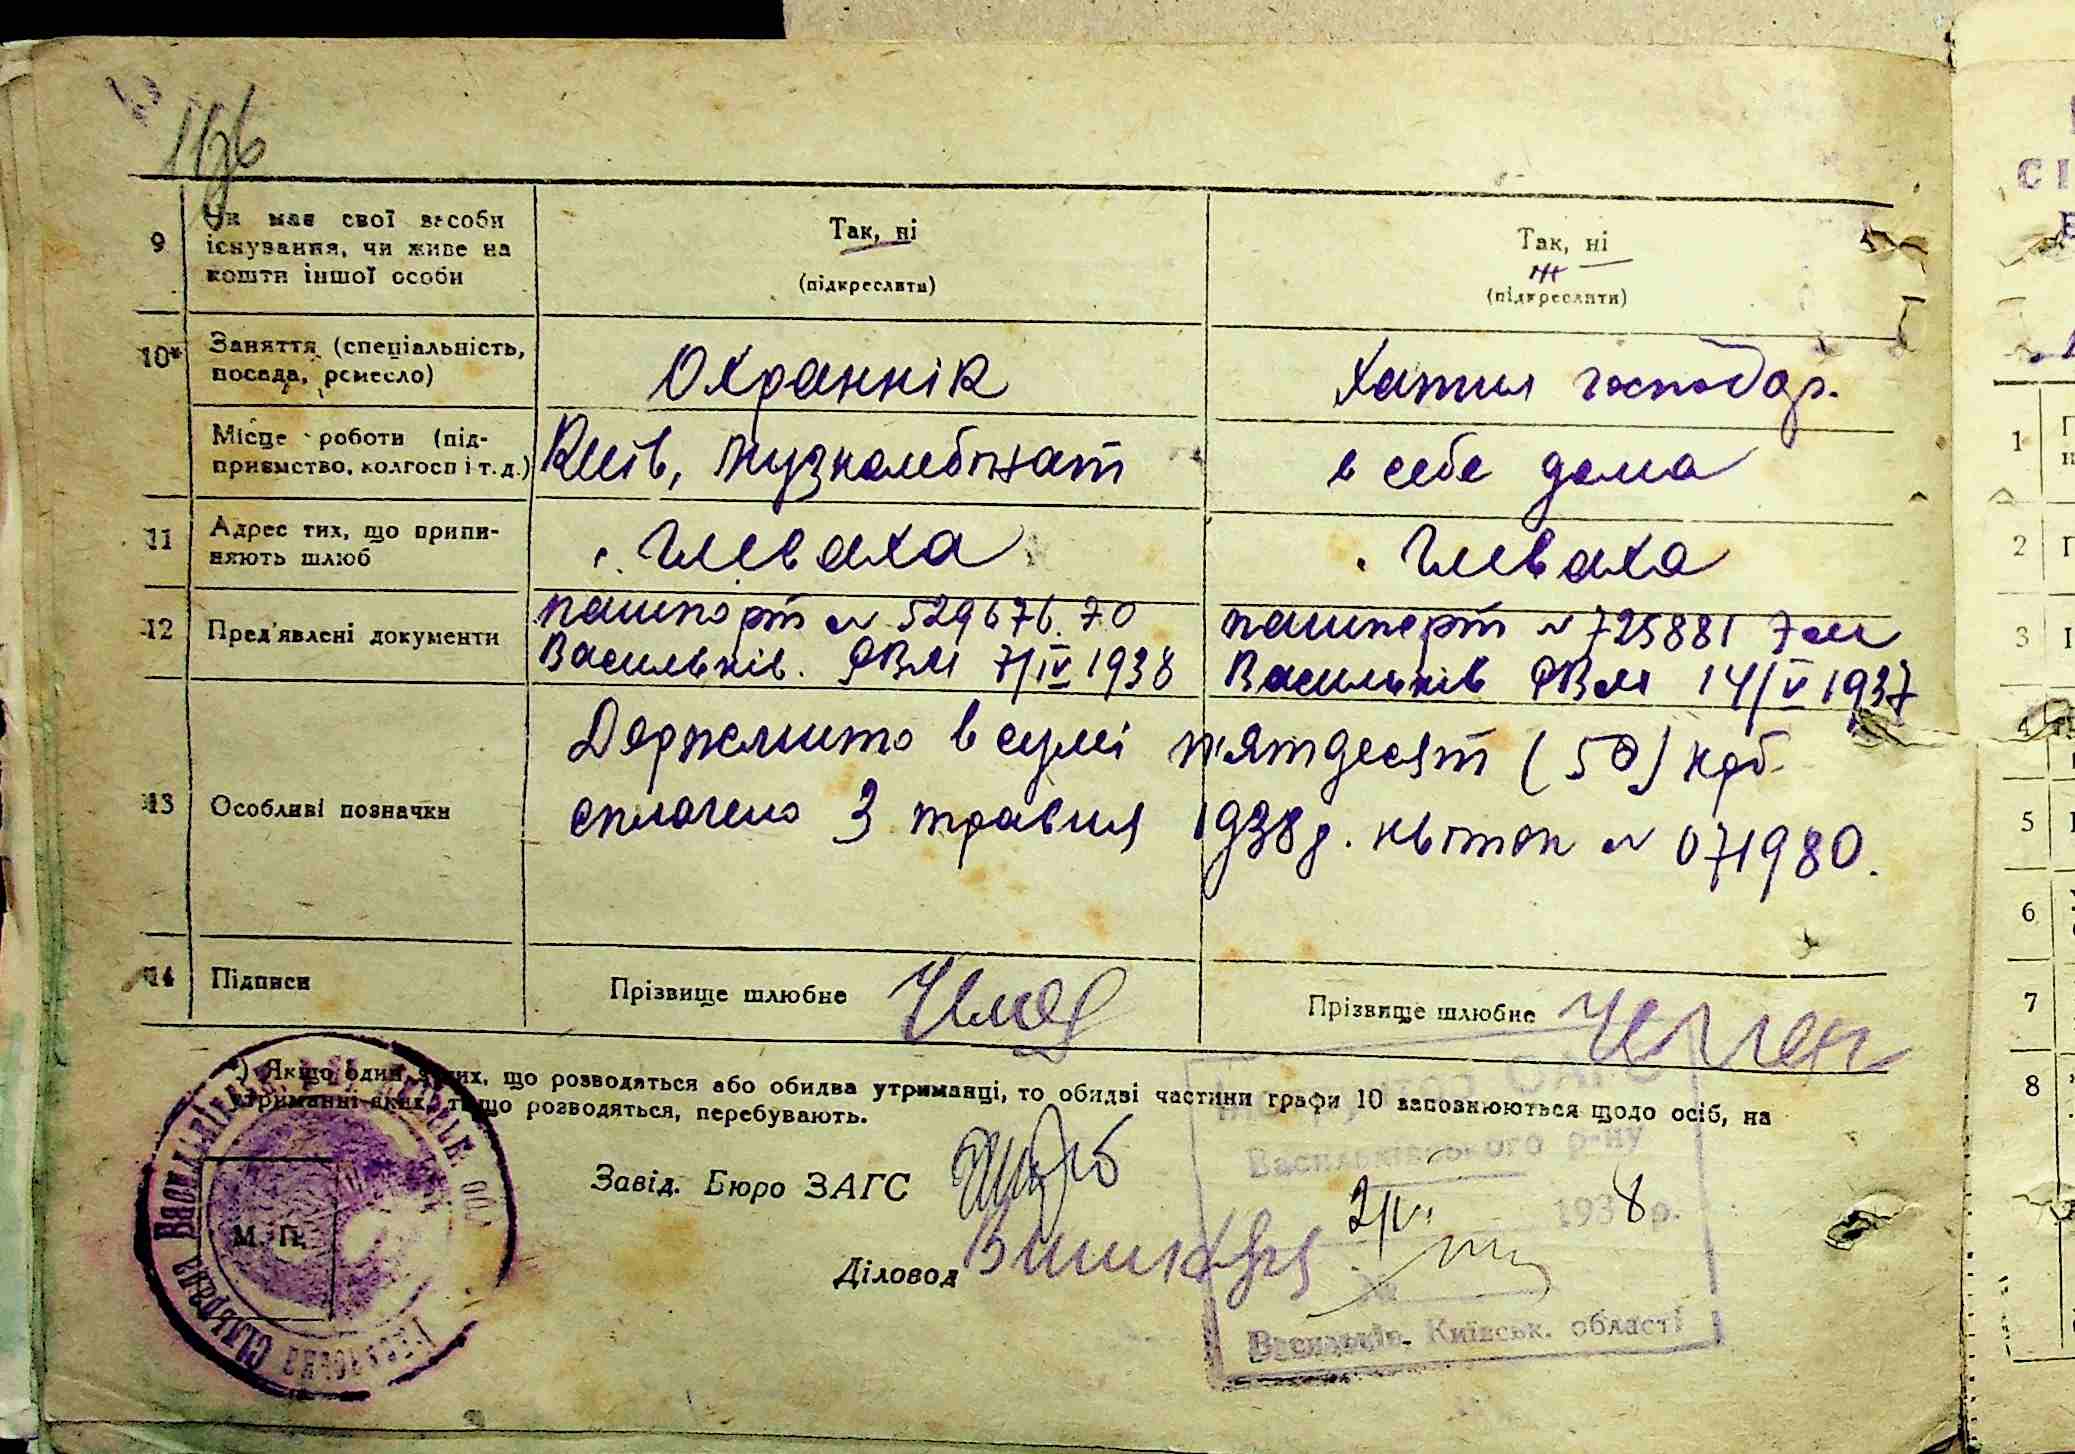 9
Чи має свої засоби
існування, чи живе на
кошти іншої особи
Так, ні
(підкреслити)
Так, ні
(підкреслити)
10*
Заняття (спеціальність,
посада, ремесло)
Охраннік
Хатня господар.
Місце роботи (під-
приємство, колгосп і т. д.)
Київ, Музкомбінат
в себе дома
11
Адрес тих, що припи-
няють шлюб
Глеваха
Глеваха
12
Пред'явлені документи
пашпорт № 529676.70
Васильків. РВМ 7/IV 1938
пашпорт № 725881
Васильків РВМ 14/V 1937
13
Особливі позначки
Держмито в сумі п'ятдесят (50) крб
сплачено 3 травня 1938 р. квіток № 071980.
14
Підписи
Прізвище шлюбне
Прізвище шлюбне
*) Якщо один з тих, що розводяться або обидва утриманці, то обидві частини графи 10 заповнюються щодо осіб, на
утриманні яких, ті що розводяться, перебувають.
Завід. Бюро ЗАГС
М. П.
Діловод
Васильківського р-ну
1938 р.
№
Васильків, Київськ. області
СІ
1
2
3
4
5
6
7
8